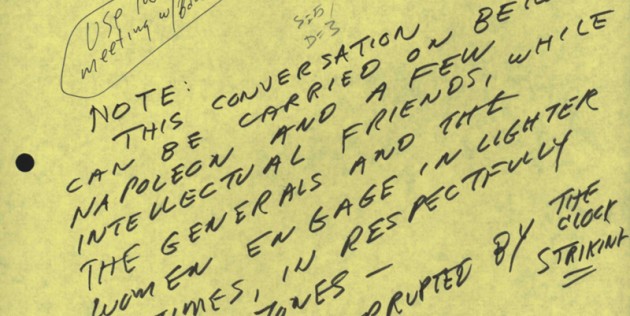 USE
meeting w/
S=5/
D=3
NOTE:
THIS CONVERSATION
CAN BE CARRIED ON
NAPOLEON AND A FEW
INTELLECTUAL FRIENDS, WHILE
THE GENERALS AND THE
WOMEN ENGAGE IN LIGHTER
IN RESPECTFULLY
TONES — BY THE
CLOCK
STRIKING